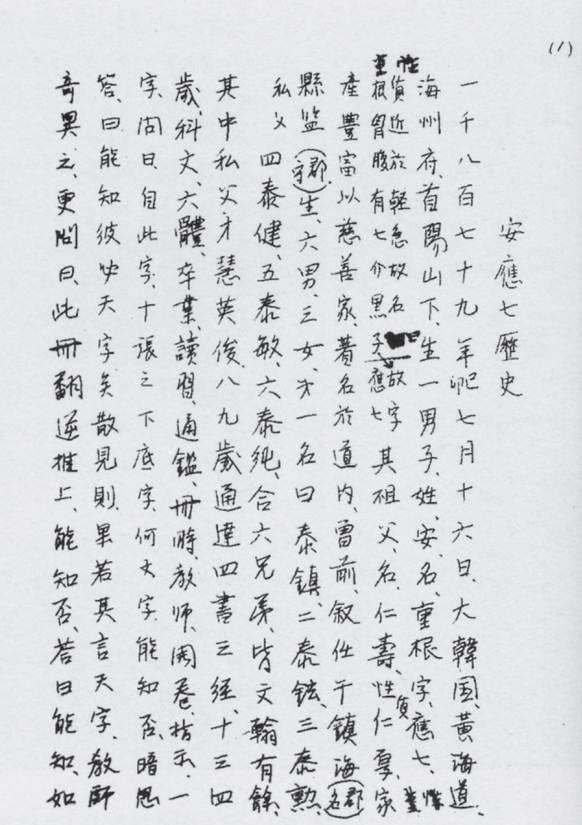 (1)
安應七歷史
一千八百七十九年 己卯 七月十六日、大韓国、黃海道、
海州府、首陽山下、生一男子、姓、安、名、重根、字、應七、
性質近於輕急故名
重根胷腹有七介黑子故字
應七 其祖父、名、仁壽、性質仁厚、家
產豊富以慈善家、著名於道內、曾前、叙仕于鎮海
縣監 生、六男、三女、才一名曰泰鎮、二泰鉉、三泰勲、
私父 四泰健、五泰敏、六泰純、合六兄弟、皆文翰有餘、
其中私父才慧英俊、八九歲通達四書三経、十三四
歲、科文、六體、卒業、讀習、通鑑、冊時、教師、開卷、指示、一
字、問曰、自此字、十張之下底字、何文字、能知否、暗思
答、曰能知彼必天字矣散見則果若其言天字、教師
奇異之、更問曰、此冊翻逆推上、能知否、答曰能知、如